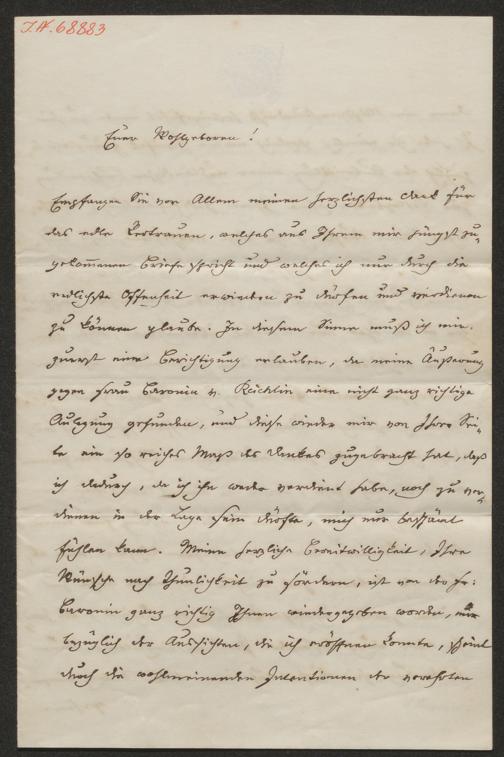 I.N. 68883
Euer Wohlgeboren!
Empfangen Sie vor Allem meinen herzlichsten Dank für
das edle Vertrauen, welches aus Ihrem mir jüngst zu-
gekommenen Briefe spricht und welches ich nur durch die
redlichste Offenheit erwiedern zu dürfen und verdienen
zu können glaube. In diesem Sinne muß ich mir
zuerst eine Berichtigung erlauben, da meine Äußerung
gegen Frau Baronin v. Reichlin eine nicht ganz richtige
Auslegung gefunden, und diese wieder mir von Ihrer Sei-
te ein so reiches Maß des Dankes zugebracht hat, daß
ich dadurch, da ich ihn weder verdient habe, noch zu ver-
dienen in der Lage sein dürfte, mich nur beschämt
fühlen kann. Meine herzliche Bereitwilligkeit, Ihre
Wünsche nach Thunlichkeit zu fördern, ist von der Fr:
Baronin ganz richtig Ihnen wiedergegeben worden, nur
bezüglich der Aussichten, die ich eröffnen konnte, scheint
durch die wohlmeinenden Intentionen der verehrten